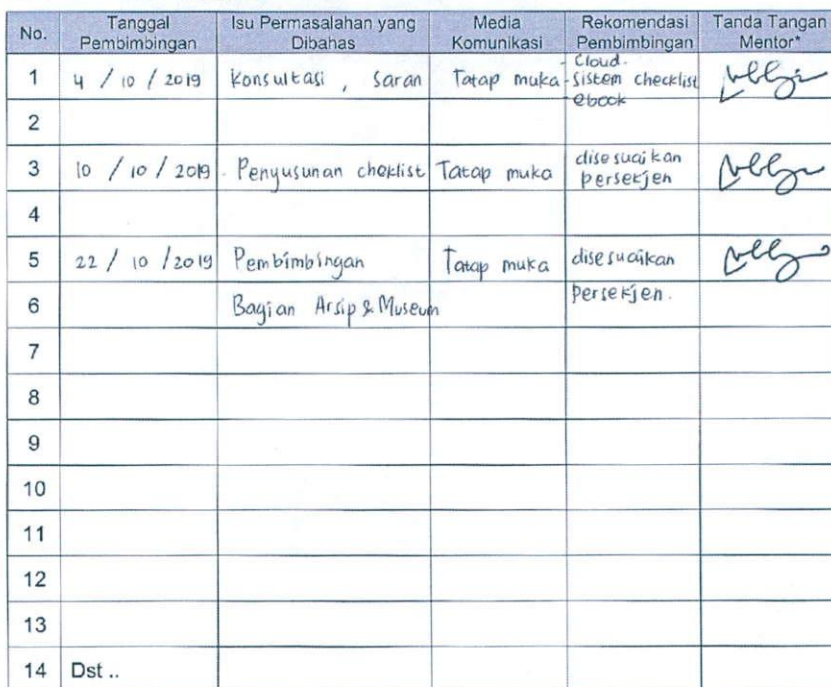 No. Tanggal Pembimbingan Isu Permasalahan yang Dibahas Media Komunikasi Rekomendasi Pembimbingan Tanda Tangan Mentor*
1 4 / 10 / 2019 Konsultasi , Saran Tatap muka - Cloud.
- Sistem checklist
- ebook
2
3 10 / 10 / 2019 Penyusunan cheklist Tatap muka disesuaikan
persekjen
4
5 22 / 10 / 2019 Pembimbingan Tatap muka disesuaikan
6 Bagian Arsip & Museum persekjen.
7
8
9
10
11
12
13
14 Dst ..